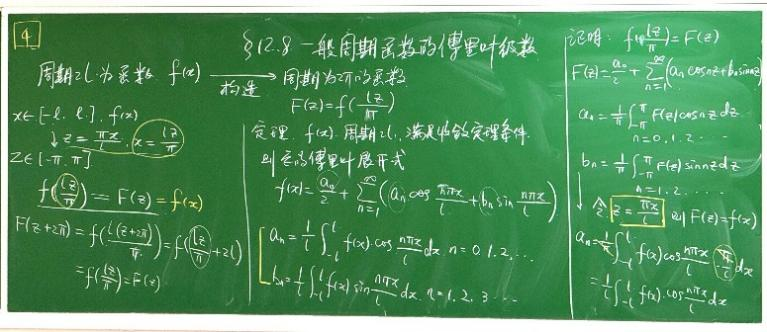 4
§12.8 一般周期函数的傅里叶级数
周期2l为函数 f(x) 构造 → 周期为2π的函数
F(z)=f(lz/π)
x∈[-l, l], f(x)
↓ z=πx/l, x=lz/π
Z∈[-π, π]
f(lz/π)=F(z)=f(x)
F(z+2π)=f(l(z+2π)/π)=f(lz/π+2l)
=f(lz/π)=F(z)
定理 f(x) 周期2l, 满足收敛定理条件
则它的傅里叶展开式
f(x)=a₀/2+∑_{n=1}^{∞}(aₙcos nπx/l+bₙsin nπx/l)
aₙ=1/l∫_{-l}^{l} f(x)·cos nπx/l dx n=0,1,2,…
bₙ=1/l∫_{-l}^{l} f(x) sin nπx/l dx n=1,2,3…
证明: f(lz/π)=F(z)
F(z)=a₀/2+∑_{n=1}^{∞}(aₙcosnz+bₙsinnz)
aₙ=1/π∫_{-π}^{π}F(z)cosnzdz
n=0,1,2…
bₙ=1/π∫_{-π}^{π}F(z)sinnzdz
n=1,2,…
↓ 令 z=πx/l 则F(z)=f(x)
aₙ=1/π∫_{-l}^{l}f(x)cos nπx/l π/l dx
=1/l∫_{-l}^{l}f(x)·cos nπx/l dx